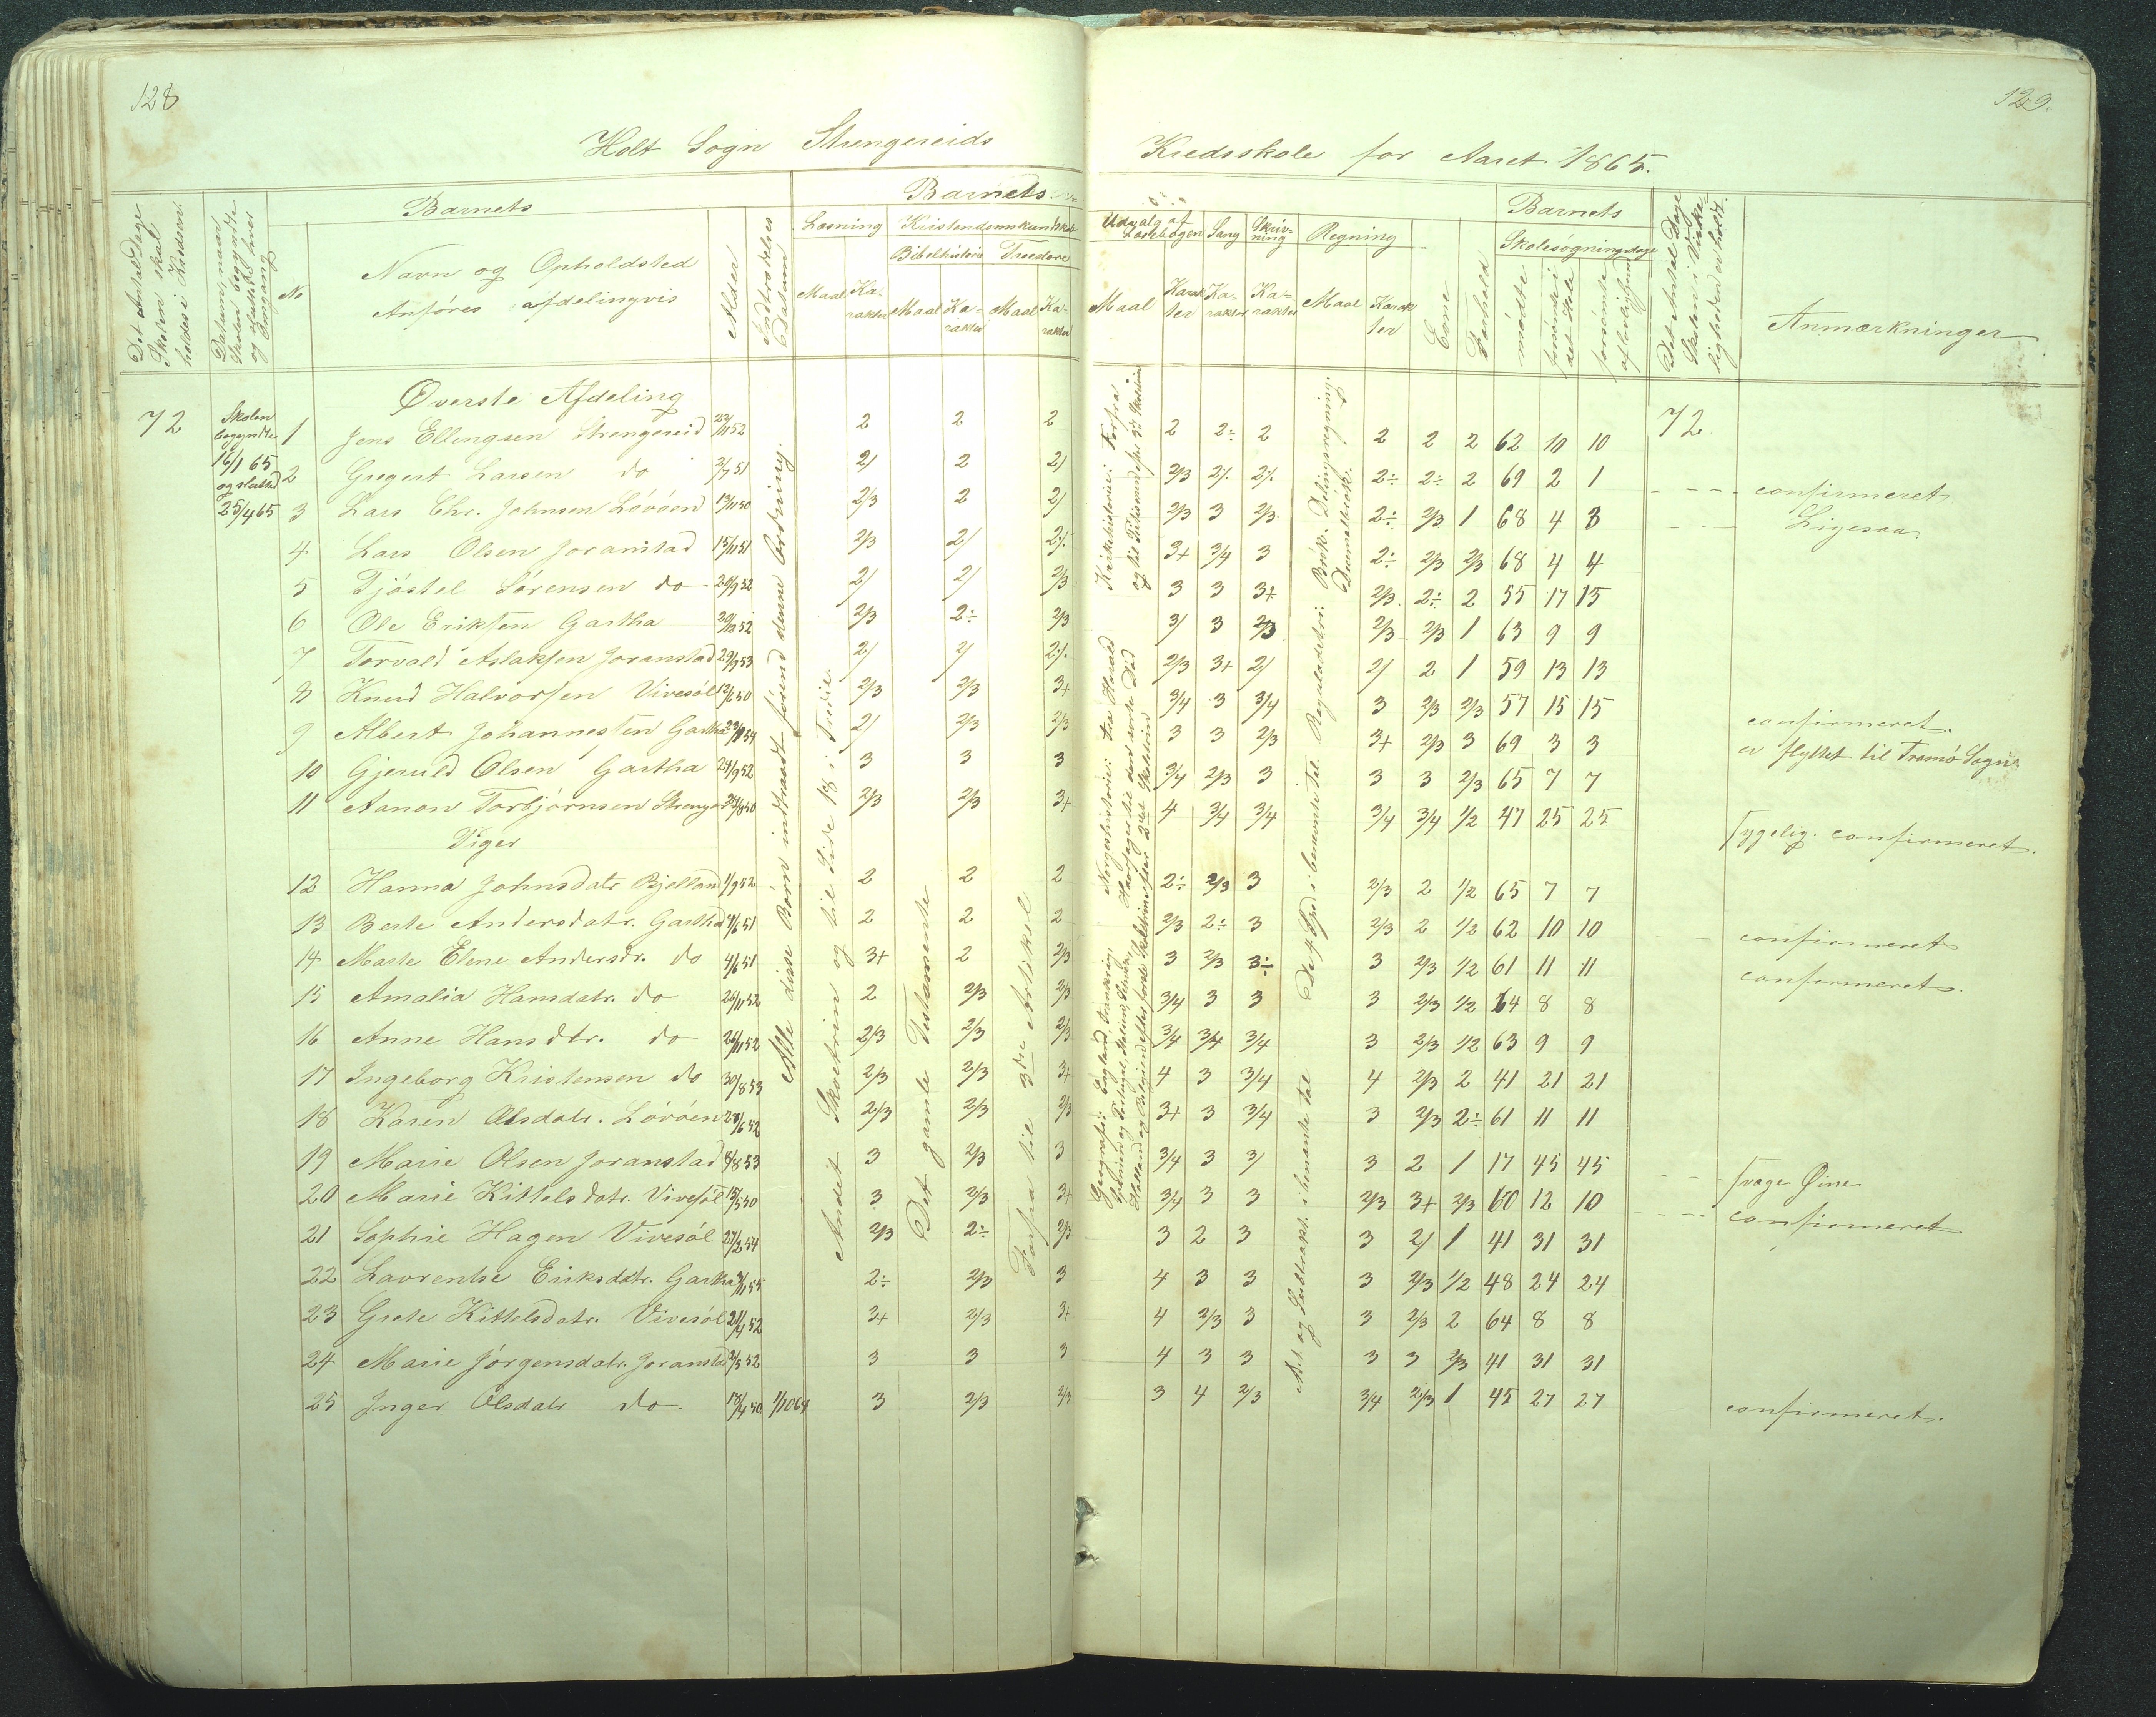 128
129.
Holt Sogn Strengereids
Kredsskole for Aaret 1865.
Det Antal Dage Skolen skal holdes i Kredsen.
Datum, naar Skolen begyndte og sluttede hver Omgang
No
Barnets
Navn og Opholdsted
Anføres afdelingvis
Alder
Indtrædelses Datum
Barnets
Læsning
Kristendomskundskab
Bibelhistorie
Troeslære
Maal Karakter Maal Karakter Maal Karakter
Udvalg af Læsebogen
Sang
Skrivning
Regning
Maal Karakter Karakter Karakter Maal Karakter
Evne
Forhold
Barnets
Skolesøgningsdage
mødte
forsømte i det Hele
forsømte af
Det Antal Dage Skolen i Virkeligheden er holdt.
Anmærkninger
Øverste Afdeling
72
Skolen begyndte 16/1 65 og sluttede 25/4 65
1 Jens Ellingsen Strengereid 22/11 52 2 2 2 2 2÷ 2 2 2 2 62 10 10 72.
2 Gregert Larsen do 2/7 51 2/ 2 2/ 2/3 2/. 2/. 2÷ 2÷ 2 69 2 1 confirmeret
3 Lars Chr. Johnsen Løvøen 13/11 50 2/3 2 2/ 2/3 3 2/3 2÷ 2/3 1 68 4 3 Ligesaa
4 Lars Olsen Joranstad 15/11 51 2/3 2/ 2/. 3+ 3/4 3 2÷ 2/3 2/3 68 4 4
5 Tjøstel Sørensen do 29/9 52 2/ 2/ 2/3 3 3 3+ 2/3 2÷ 2 55 17 15
6 Ole Eriksen Gartha 52 2/3 2÷ 2/3 3/ 3 2/3 2/3 2/3 1 63 9 9
7 Torvald Aslaksen Joranstad 29/9 53 2/ 2/ 2/. 2/3 3+ 2/ 2/ 2 1 59 13 13
8 Knud Halvorsen Vivesøl 12/6 50 2/3 2/3 3+ 3/4 3 3/4 3 2/3 2/3 57 15 15 confirmeret.
9 Albert Johannesen Gartha 54 2/ 2/3 2/3 3 3 2/3 3+ 2/3 3 69 3 3 er flyttet til Tromø Sogn.
10 Gjeruld Olsen Gartha 24/9 52 3 3 3 3/4 2/3 3 3 3 2/3 65 7 7
11 Aanon Torbjørnsen 50 2/3 2/3 3+ 4 3/4 3/4 3/4 3/4 1/2 47 25 25 sygelig. confirmeret.
Piger
12 Hanna Johnsdatr Bjelland 1/9 52 2 2 2 2÷ 2/3 3 2/3 2 1/2 65 7 7
13 Berte Andersdatr. Gartha 4/6 51 2 2 2 2/3 2÷ 3 2/3 2 1/2 62 10 10 confirmeret
14 Marte Elene Andersdr. do 4/6 51 3+ 2 2/3 3 2/3 3÷ 3 2/3 1/2 61 11 11 confirmeret.
15 Amalia Hansdatr. do 26/11 52 2 2/3 2/3 3/4 3 3 3 2/3 1/2 64 8 8
16 Anne Hansdtr. do 26/11 52 2/3 2/3 2/3 3/4 3/4 3/4 3 2/3 1/2 63 9 9
17 Ingeborg Kristensen do 30/8 53 2/3 2/3 3+ 4 3 3/4 4 2/3 2 41 21 21
18 Karen Olsdatr. Løvøen 28/6 52 2/3 2/3 2/3 3+ 3 3/4 3 2/3 2÷ 61 11 11
19 Marie Olsen Joranstad 8/8 53 3 2/3 3 3/4 3 3/ 3 2 1 17 45 45 svage Øine
20 Marie Kittelsdatr. Vivesøl 15/5 50 3 2/3 3+ 3/4 3 3 2/3 3+ 2/3 60 12 10 confirmeret
21 Sophie Hagen Vivesøl 27/2 54 2/3 2÷ 2/3 3 2 3 3 2/ 1 41 31 31
22 Lavrentse Eriksdatr. Gartha 55 2÷ 2/3 3 4 3 3 3 2/3 1/2 48 24 24
23 Grete Kittelsdatr. Vivesøl 21/4 52 3+ 2/3 3+ 4 2/3 3 3 2/3 2 64 8 8
24 Marie Jørgensdatr. Joranstad 2/5 52 3 3 3 4 3 3 3 3 2/3 41 31 31
25 Inger Olsdatr do. 13/4 50 1/10 64 3 2/3 2/3 3 4 2/3 3/4 2/3 1 45 27 27 confirmeret.
Alle disse Børn indtraadt førend denne Ordning.
Andet Skoletrin og til Side 18 i Tredie.
Det gamle Testamente
Forfra til 3die Artikel
Kirkehistorie: Forfra og til
Norgeshistorie: fra Harald Haarfager til
Geografi: England,
Holland og Belgien efter første Skoletrin
Reguladetri: Brøk. Delingsregning. Decimalbrøk.
De 4 Spd i benævnte Tal.
Add. og Subtrakt. i benævnte tal